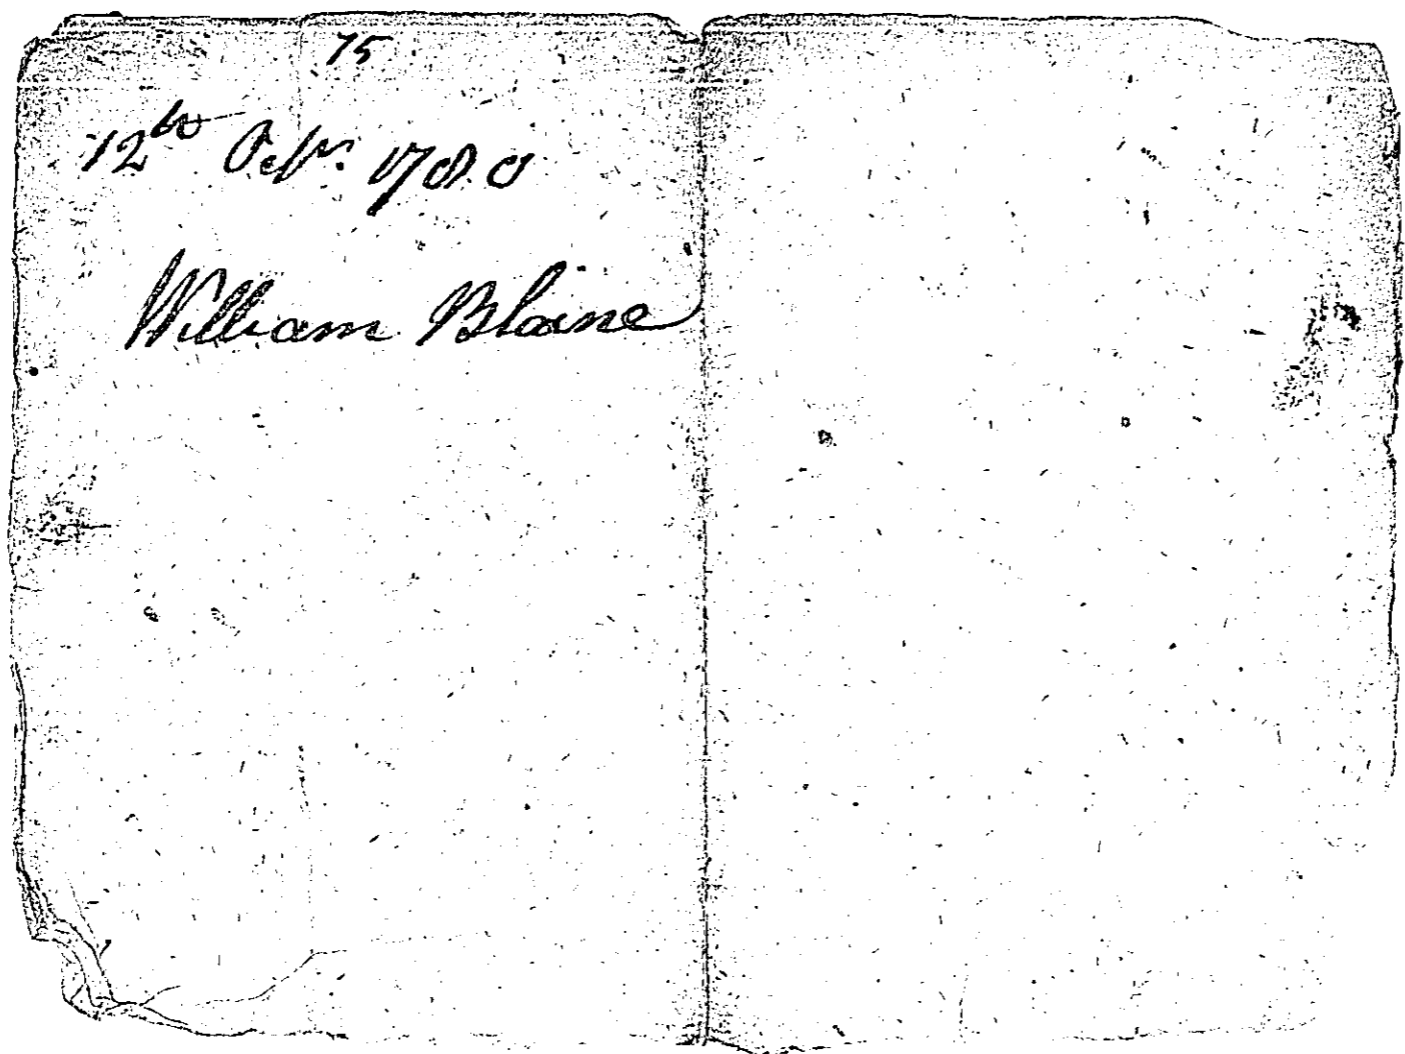 75
12th Octr. 1780
William Blaine